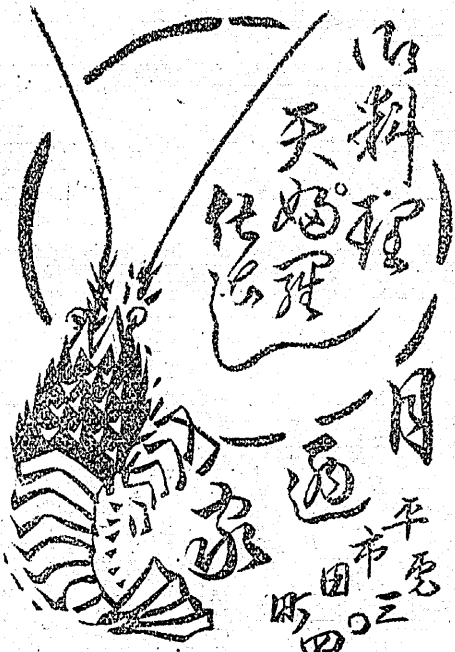 御料理
天婦羅
仕出し
月廼家
平市田町
電三〇四